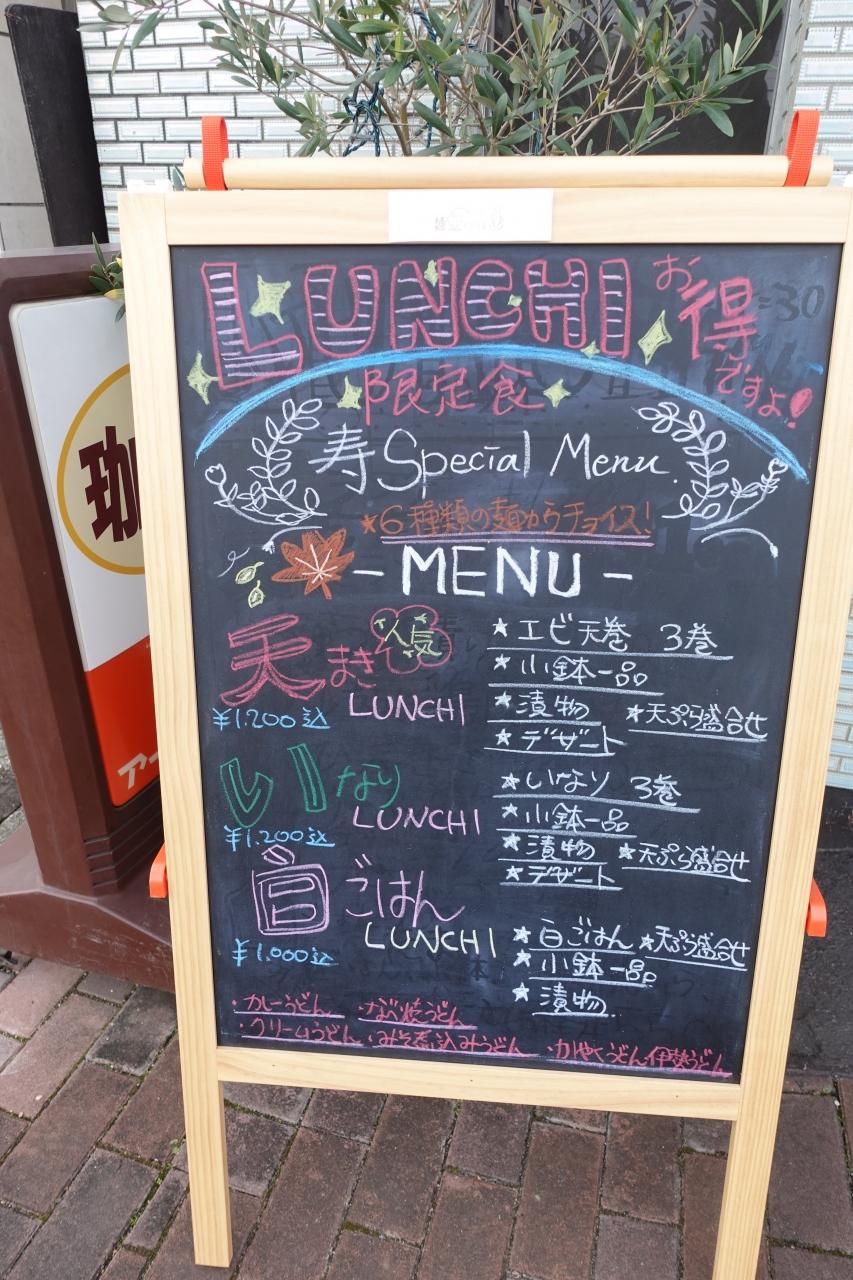 LUNCHI お得ですよ!
限定食
寿 Special Menu.
★6種類の麺からチョイス!
- MENU -
天まき 人気
LUNCHI
¥1.200込
★エビ天巻 3巻
★小鉢一品
★漬物 ★天ぷら盛合せ
★デザート
いなり
LUNCHI
¥1.200込
★いなり 3巻
★小鉢一品
★漬物 ★天ぷら盛合せ
★デザート
白ごはん
LUNCHI
¥1.000込
★白ごはん ★天ぷら盛合せ
★小鉢一品
★漬物
・カレーうどん ・なべ焼うどん
・クリームうどん ・みそ煮込みうどん ・かやくうどん 伊勢うどん
珈
アー